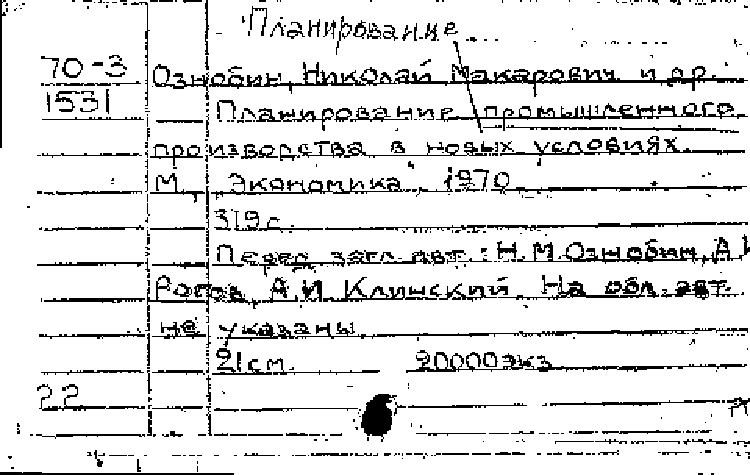 Планирование
70-3 Ознобин, Николай Макарович и др.
1531 Планирование промышленного
производства в новых условиях.
М., "Экономика", 1970
319 с.
Перед загл. авт.: Н.М.Ознобин, А.И
Рогов, А.И. Клинский. На обл. авт.
не указаны
21 см. 20000 экз
22